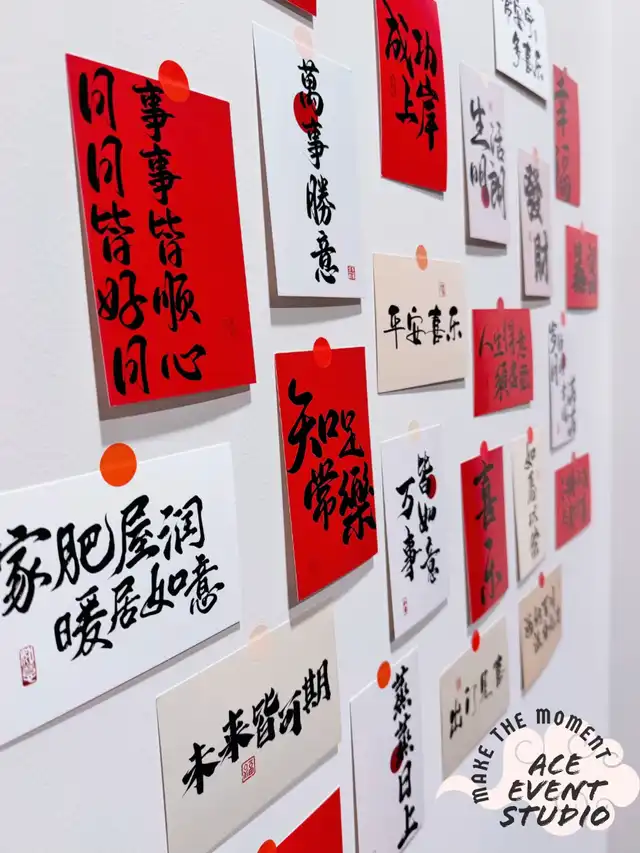 事事皆顺心
日日皆好日
萬事勝意
成功
上岸
多喜乐
生活
明朗
發財
平安喜乐
人生得意
知足
常樂
万事
皆如意
喜乐
家肥屋润
暖居如意
未来皆可期
蒸蒸日上
MAKE THE MOMENT
ACE
EVENT
STUDIO